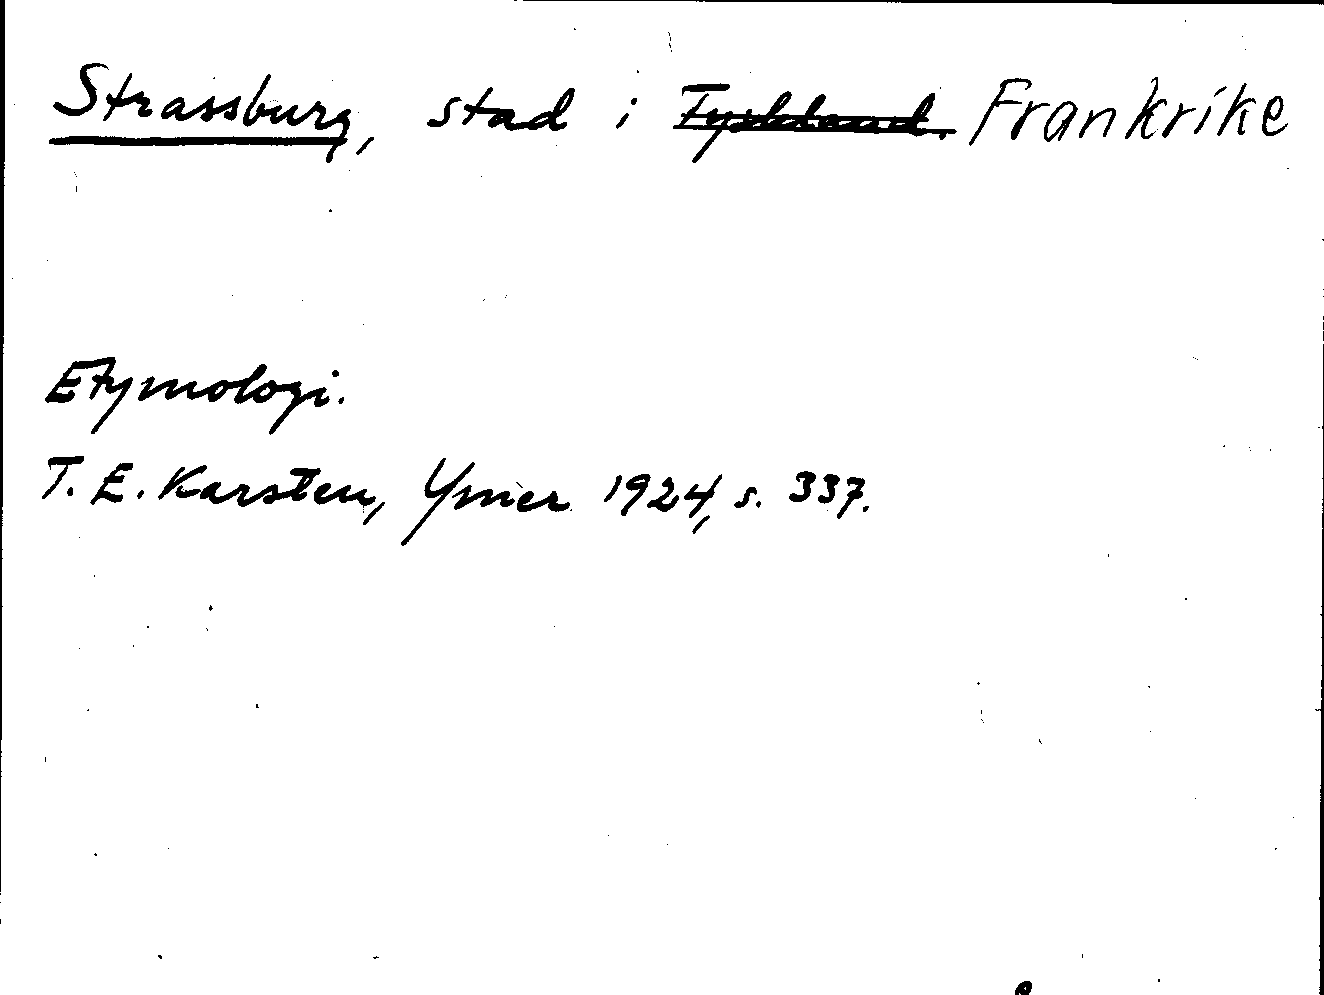 Strassburg, stad i Tyskland. Frankrike
Etymologi.
T. E. Karsten, Ymer 1924, s. 337.